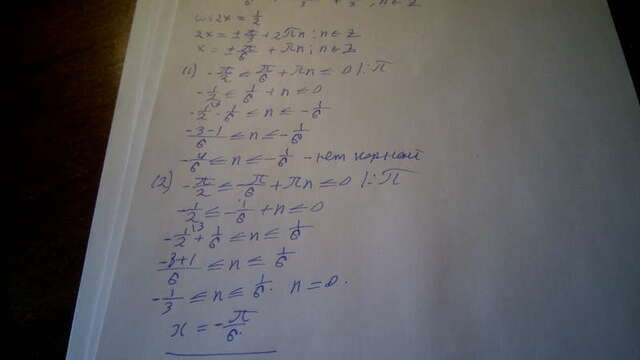 cos2x = 1/2
2x = ± π/3 + 2πn; n ∈ Z
x = ± π/6 + πn; n ∈ Z
(1) -π/2 ≤ π/6 + πn ≤ 0 | : π
-1/2 ≤ 1/6 + n ≤ 0
-1/2 - 1/6 ≤ n ≤ -1/6
(-3-1)/6 ≤ n ≤ -1/6
-4/6 ≤ n ≤ -1/6 - нет корней
(2) -π/2 ≤ -π/6 + πn ≤ 0 | : π
-1/2 ≤ -1/6 + n ≤ 0
-1/2 + 1/6 ≤ n ≤ 1/6
(-3+1)/6 ≤ n ≤ 1/6
-1/3 ≤ n ≤ 1/6. n = 0.
x = -π/6.